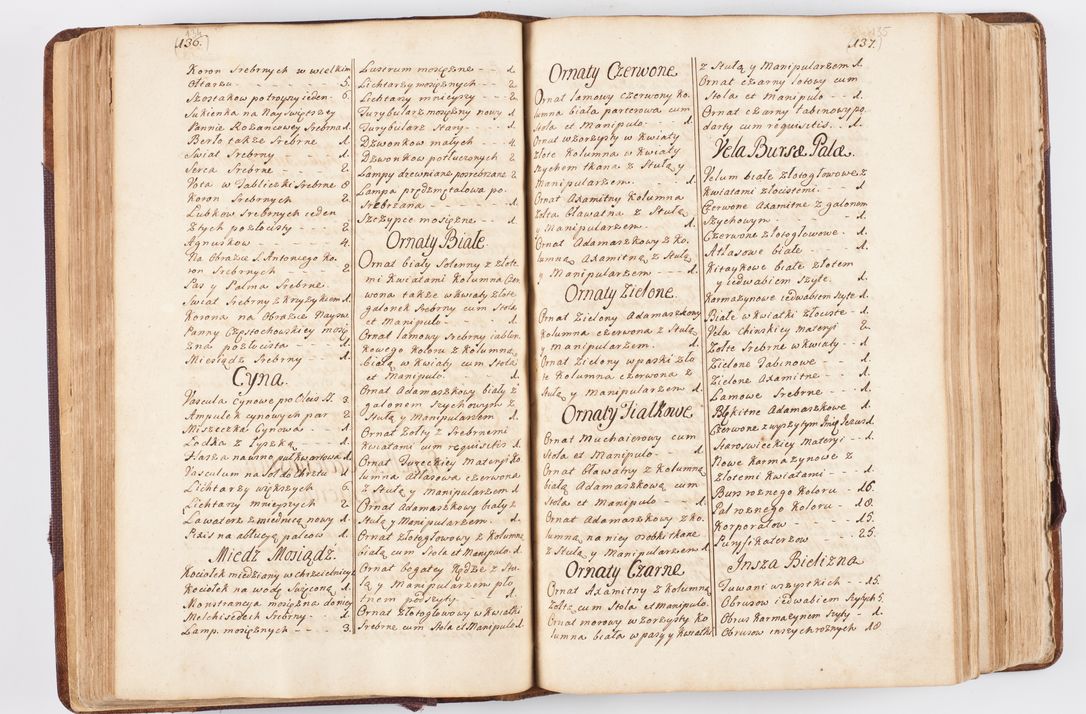 136.
Koron Srebrnych w wielkim
Ołtarzu - - - 5.
Szostakow potroyny ieden - 6.
Sukienka na Nayswięszey
Pannie Rożancowey Srebrna 1.
Berło także Srebrne 1.
Swiat Srebrny - - - 1.
Serca Srebrne - - - 2.
Vota w Tabliczki Srebrne 8
Koron Srebrnych - - 2.
Lubkow Srebrnych ieden
Ztych pozłocisty - - 2
Agnuskow - - - 4.
Na Obrazie S. Antoniego Ko-
ron Srebrnych - - 2
Pas y Palma Srebrne
Swiat Srebrny z Krzyżykiem 1.
Korona na Obrazie Naysw.
Panny Częstochowskiey mosię-
żna pozłocista - - 1.
Miesiądz Srebrny - - 1.
Cyna.
Vascula Cynowe po Oleis SS. 3.
Ampułek cynowych par 2
Miszeczka Cynowa - - 1.
Łodka z Łyszką - - - 1.
Flasza na wino pułkwartowa 1
Vasculum na sol do Chrztu 1
Lichtarzy większych 6.
Lichtarzy mnieyszych 2
Lawaterz z miednicą nowy 1
Pixis na ablucyą palcow 1.
Miedz Mosiądz.
Kociołek miedziany w chrzcielnicy 1
Kociołek na wodę Swięconą 1
Monstrancya mosiężna
Melchisedech Srebrny - 1.
Lamp mosiężnych - - 3.
Lustrum mosiężne - - 1.
Lichtarzy mosiężnych - 2
Lichtarzy mnieyszy - - 2.
Turybularz mosiężny nowy 1
Turybularz Stary - - 1.
Dzwonkow małych - - 4.
Dzwonkow potłuczonych 2
Lampy drewniane posrebrzane 2
Lampa prędzmetalowa po-
srebrzana - - - 1.
Szczypce mosiężne - - 1.
Ornaty Białe.
Ornat biały Solenny z złote-
mi kwiatami kolumna Czer-
wona także w kwiaty złote
Galonek Srebrny cum Stola
et Manipulo - - - 1.
Ornat lamowy Srebrny iabłon-
kowego koloru z kolumną
białą w kwiaty cum Stola
et Manipulo - - - 1.
Ornat Adamaszkowy biały z
galonem Szychowym z
Stułą y Manipularzem 1.
Ornat Zołty z Srebrnemi
kwiatami cum requisitis 1.
Ornat Tureckiey Materyi ko-
lumna Atłasowa czerwona
z Stułą y Manipularzem 1.
Ornat Adamaszkowy biały z
Stułą y Manipularzem 1.
Ornat Złotogłowowy z kolumną
białą cum Stola et Manipulo 1.
Ornat bogatey Kędzie z Stu-
łą y Manipularzem pło-
tnem podszyty - - 1.
Ornat Złotogłowowy w kwiatki
Srebrne cum Stola et Manipulo 1.
137.
Ornaty Czerwone
Ornat lamowy czerwony ko-
lumna biała parterowa cum
Stola et Manipulo - - 1.
Ornat wzorzysty w kwiaty
złote kolumna w kwiaty
szychem tkana z Stułą y
Manipularzem. - - 1.
Ornat Axamitny kolumna
żołta bławatna z Stułą
y Manipularzem - - 1.
Ornat Adamaszkowy z ko-
lumną Axamitną z Stułą
y Manipularzem - - 1.
Ornaty Zielone.
Ornat Zielony Adamaszkowy
kolumna czerwona z Stułą
y manipularzem. - - 1.
Ornat Zielony w paski zło-
te kolumna czerwona z
Stułą y Manipularzem 1.
Ornaty Fiałkowe.
Ornat Muchaierowy cum
Stola et Manipulo - - 1.
Ornat bławatny z kolumną
białą Adamaszkową cum
Stola et Manipulo - - 1.
Ornat Adamaszkowy z ko-
lumną na niey osobki tkane
z Stułą y Manipularzem 1.
Ornaty Czarne
Ornat Axamitny z kolumną
żołtą cum Stola et Manipulo.
Ornat morowy wzorzysty ko-
lumna biała w pasy y kwiatki
z Stułą y Manipularzem 1.
Ornat czarny lotowy cum
Stola et Manipulo - - 1.
Ornat czarny tabinowy po-
darty cum requisitis - - 1.
Vela Bursæ Palæ.
Velum białe złotogłowowe z
kwiatami złocistemi - - 1.
Czerwone Axamitne z galonem
szychowym - - - 1.
Czerwone złotogłowowe - 1.
Atłasowe białe - - 1.
Kitaykowe białe złotem
y iedwabiem szyte. - 1.
Karmazynowe iedwabiem szyte 1.
Białe w kwiatki złociste - 1.
Vela chinskiey materyi 2.
Zołte Srebrne w kwiaty - 1.
Zielone Tabinowe - - 1.
Zielone Axamitne - - 1.
Lamowe Srebrne - - 1.
Błękitne Adamaszkowe 1.
Czerwone z wyszytym Imię Iezus 1
Staroswieckiey Materyi - 1.
Nowe karmazynowe z
złotemi kwiatami - - 1.
Burs rożnego koloru - 16.
Pal rożnego koloru 18.
Korporałow - - - 15.
Puryfikaterzow - - 25.
Insza Bielizna
Tuwani wszystkich - - 15.
Obrusow iedwabiem szytych 5.
Obrus karmazynem szyty - 1.
Obrusow inszych rożnych 18